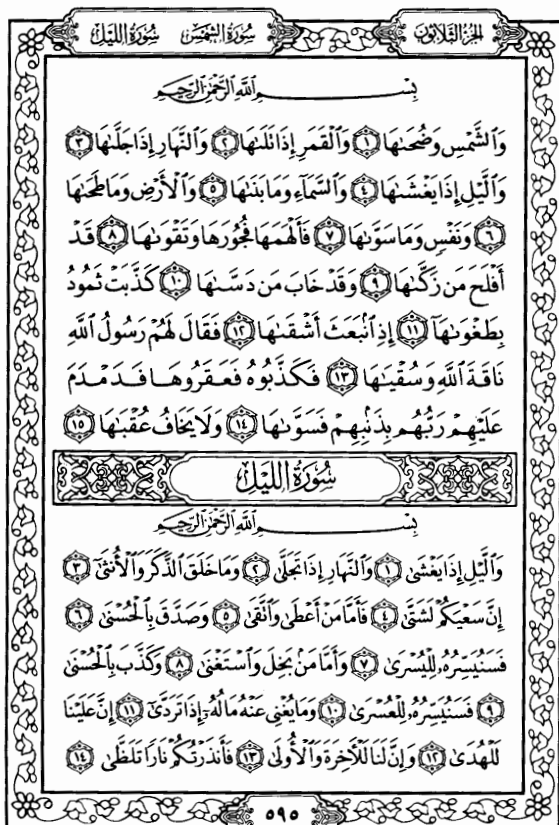 الجزء الثلاثون
سُورَةُ الشَّمْسِ
سُورَةُ اللَّيْلِ
بِسْمِ ٱللَّهِ ٱلرَّحْمَٰنِ ٱلرَّحِيمِ
وَٱلشَّمْسِ وَضُحَىٰهَا ١ وَٱلْقَمَرِ إِذَا تَلَىٰهَا ٢ وَٱلنَّهَارِ إِذَا جَلَّىٰهَا ٣
وَٱلَّيْلِ إِذَا يَغْشَىٰهَا ٤ وَٱلسَّمَآءِ وَمَا بَنَىٰهَا ٥ وَٱلْأَرْضِ وَمَا طَحَىٰهَا
٦ وَنَفْسٍ وَمَا سَوَّىٰهَا ٧ فَأَلْهَمَهَا فُجُورَهَا وَتَقْوَىٰهَا ٨ قَدْ
أَفْلَحَ مَن زَكَّىٰهَا ٩ وَقَدْ خَابَ مَن دَسَّىٰهَا ١٠ كَذَّبَتْ ثَمُودُ
بِطَغْوَىٰهَآ ١١ إِذِ ٱنۢبَعَثَ أَشْقَىٰهَا ١٢ فَقَالَ لَهُمْ رَسُولُ ٱللَّهِ
نَاقَةَ ٱللَّهِ وَسُقْيَٰهَا ١٣ فَكَذَّبُوهُ فَعَقَرُوهَا فَدَمْدَمَ
عَلَيْهِمْ رَبُّهُم بِذَنۢبِهِمْ فَسَوَّىٰهَا ١٤ وَلَا يَخَافُ عُقْبَٰهَا ١٥
سُورَةُ اللَّيْلِ
بِسْمِ ٱللَّهِ ٱلرَّحْمَٰنِ ٱلرَّحِيمِ
وَٱلَّيْلِ إِذَا يَغْشَىٰ ١ وَٱلنَّهَارِ إِذَا تَجَلَّىٰ ٢ وَمَا خَلَقَ ٱلذَّكَرَ وَٱلْأُنثَىٰٓ ٣
إِنَّ سَعْيَكُمْ لَشَتَّىٰ ٤ فَأَمَّا مَنْ أَعْطَىٰ وَٱتَّقَىٰ ٥ وَصَدَّقَ بِٱلْحُسْنَىٰ ٦
فَسَنُيَسِّرُهُۥ لِلْيُسْرَىٰ ٧ وَأَمَّا مَنۢ بَخِلَ وَٱسْتَغْنَىٰ ٨ وَكَذَّبَ بِٱلْحُسْنَىٰ
٩ فَسَنُيَسِّرُهُۥ لِلْعُسْرَىٰ ١٠ وَمَا يُغْنِى عَنْهُ مَالُهُۥٓ إِذَا تَرَدَّىٰٓ ١١ إِنَّ عَلَيْنَا
لَلْهُدَىٰ ١٢ وَإِنَّ لَنَا لَلْءَاخِرَةَ وَٱلْأُولَىٰ ١٣ فَأَنذَرْتُكُمْ نَارًا تَلَظَّىٰ ١٤
٥٩٥